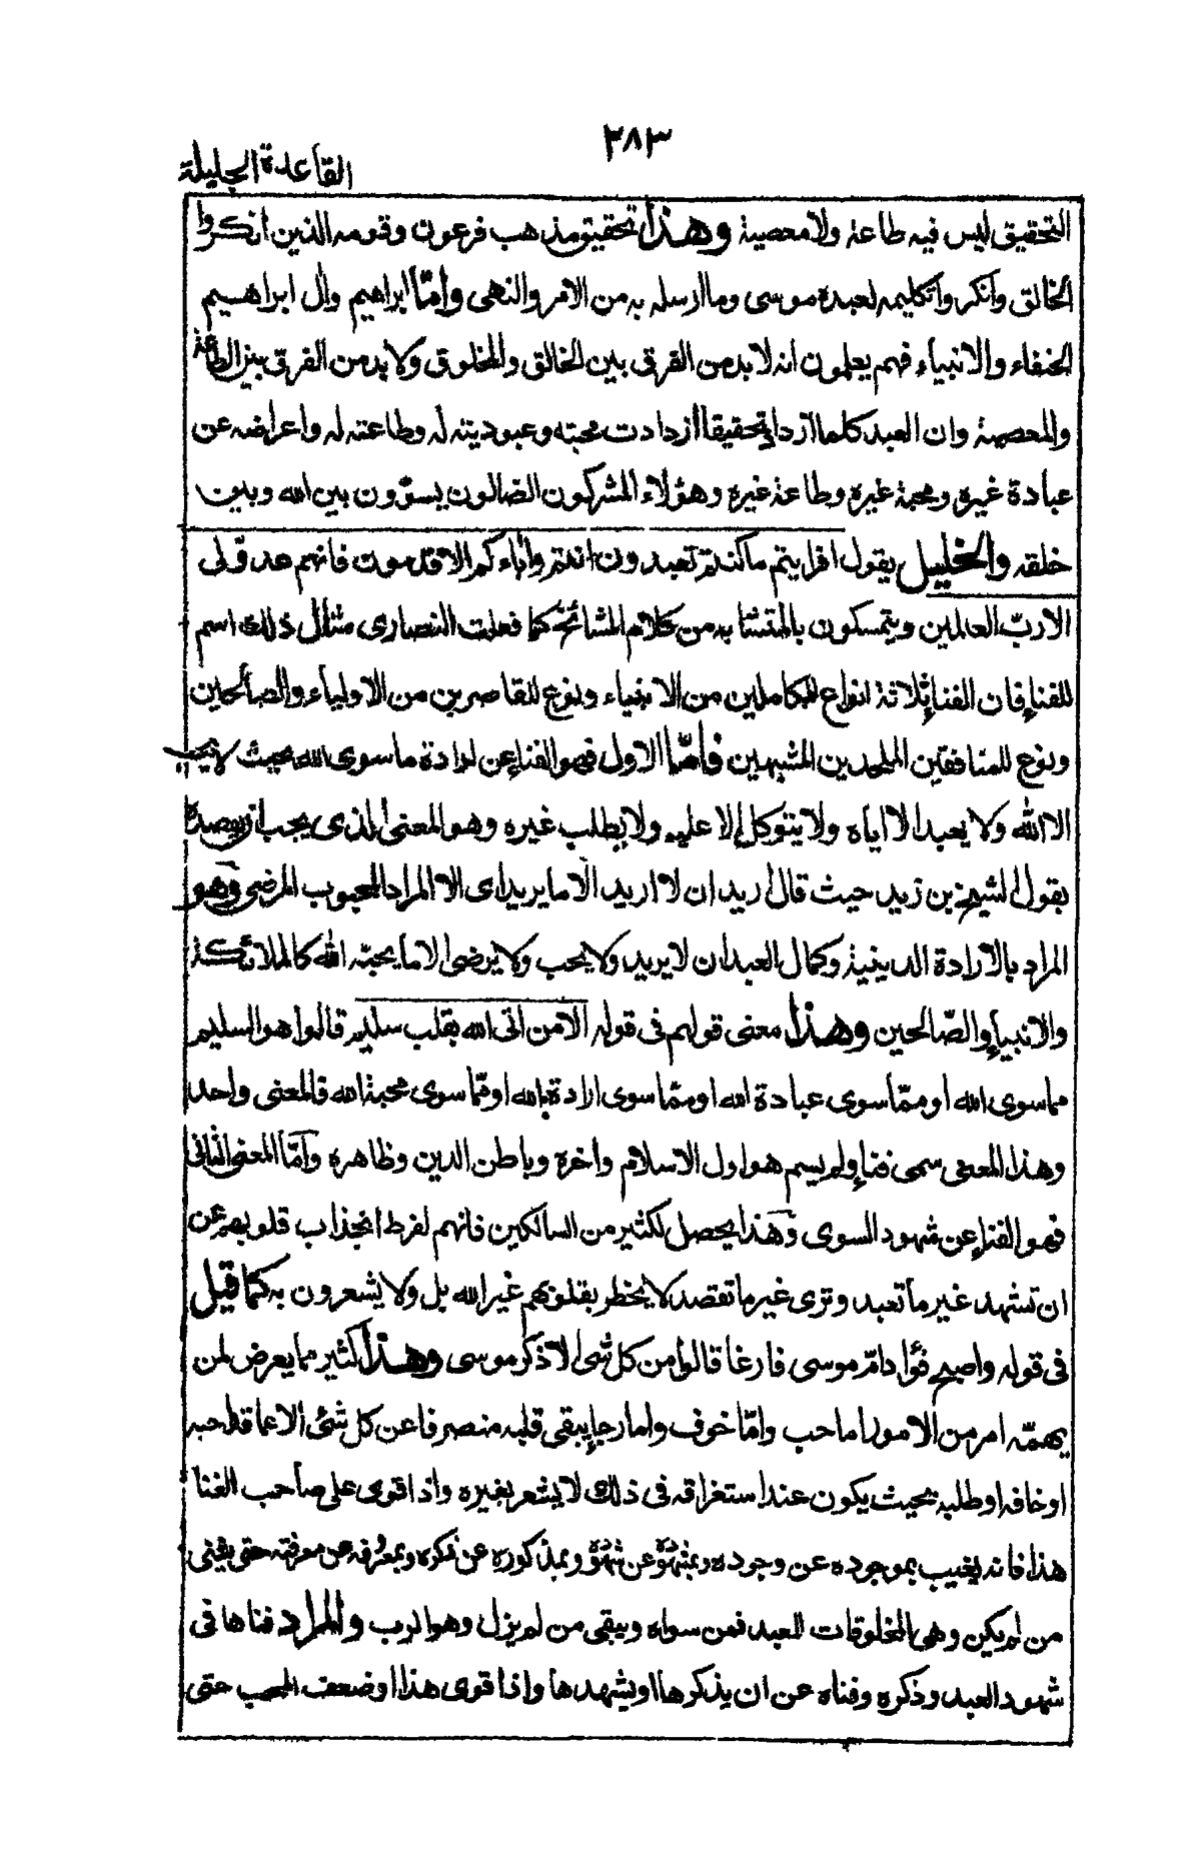 ٢٨٣
القاعدة الجليلة
التحقيق ليس فيه طاعة ولا معصية وهذا تحقيق مذهب فرعون وقومه الذين انكروا
الخالق وانكروا تكليمه لعبده موسى وما ارسله به من الامر والنهى وأمّا ابراهيم وآل ابراهيم
الحنفاء والانبياء فهم يعلمون انه لا بد من الفرق بين الخالق والمخلوق ولا بد من الفرق بين الطاعة
والمعصية وان العبد كلما ازداد تحقيقا ازدادت محبته وعبوديته له وطاعته له واعراضه عن
عبادة غيره ومحبة غيره وطاعة غيره وهؤلاء المشركون الضالون يسوّون بين الله وبين
خلقه والخليل يقول افرايتم ما كنتم تعبدون انتم وآباءكم الاقدمون فانهم عدوّلى
الا ربّ العالمين ويتمسكون بالمتشابه من كلام المشائخ كما فعلت النصارى مثال ذلك اسم
للفناء فان الفناء ثلاثة انواع للكاملين من الانبياء ونوع للقاصرين من الاولياء والصالحين
ونوع للمنافقين الملحدين المشبهين فأمّا الاول فهو الفناء عن ارادة ما سوى الله بحيث لا يحب
الا الله ولا يعبد الا اياه ولا يتوكل الا عليه ولا يطلب غيره وهو المعنى الذى يجب ان يقصده
بقول الشيخ بن زيد حيث قال اريد ان لا اريد الا ما يريد اى الا المراد المحبوب المرضى وهو
المراد بالارادة الدينية وكمال العبد ان لا يريد ولا يحب ولا يرضى الا ما يحبّه الله كالملائكة
والانبياء والصّالحين وهذا معنى قولهم فى قوله الا من اتى الله بقلب سليم قالوا هو السليم
مما سوى الله او ممّا سوى عبادة الله او ممّا سوى ارادة الله او ممّا سوى محبة الله فالمعنى واحد
وهذا المعنى سمى فناء ولم يسم هو اول الاسلام واخره وباطن الدين وظاهره وأمّا المعنى الثانى
فهو الفناء عن شهود السوى وهذا يحصل لكثير من السالكين فانهم لفرط انجذاب قلوبهم عن
ان تشهد غير ما تعبد وترى غير ما تقصد لا يخطر بقلوبهم غير الله بل ولا يشعرون به كما قيل
فى قوله واصبح فؤاد امّ موسى فارغا قالوا من كل شئ الا ذكر موسى وهذا كثير مما يعرض لمن
يهمّه امر من الامور اما حب وامّا خوف واما رجاء يبقى قلبه منصرفا عن كل شئ الا عما قد احبه
او خافه او طلبه بحيث يكون عند استغراقه فى ذلك لا يشعر بغيره واذا قوى على صاحب الفنا
هذا فانه يغيب بموجوده عن وجوده وبمشهوده عن شهوده وبمذكوره عن ذكره وبمعروفه عن معرفته حتى يفنى
من لم يكن وهى المخلوقات العبد فمن سواه ويبقى من لم يزل وهو الرب والمراد فناها فى
شهود العبد وذكره وفناه عن ان يذكرها او يشهدها واذا قوى هذا او ضعف المحب حتى